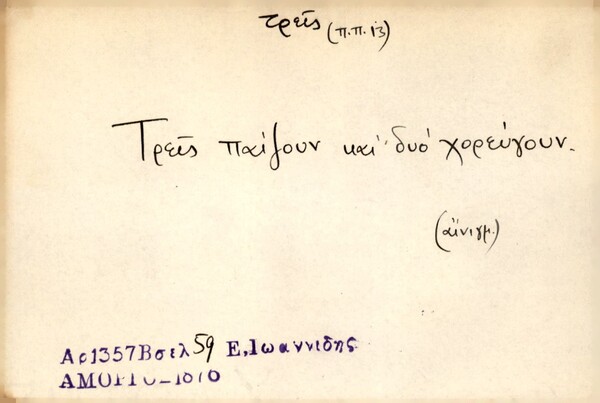 τρεῖς (π.π. 13)
Τρεῖς παίζουν καὶ δυὸ χορεύγουν.
(αἴνιγμ.)
Αρ1357Βσελ59 Ε.Ιωαννιδης